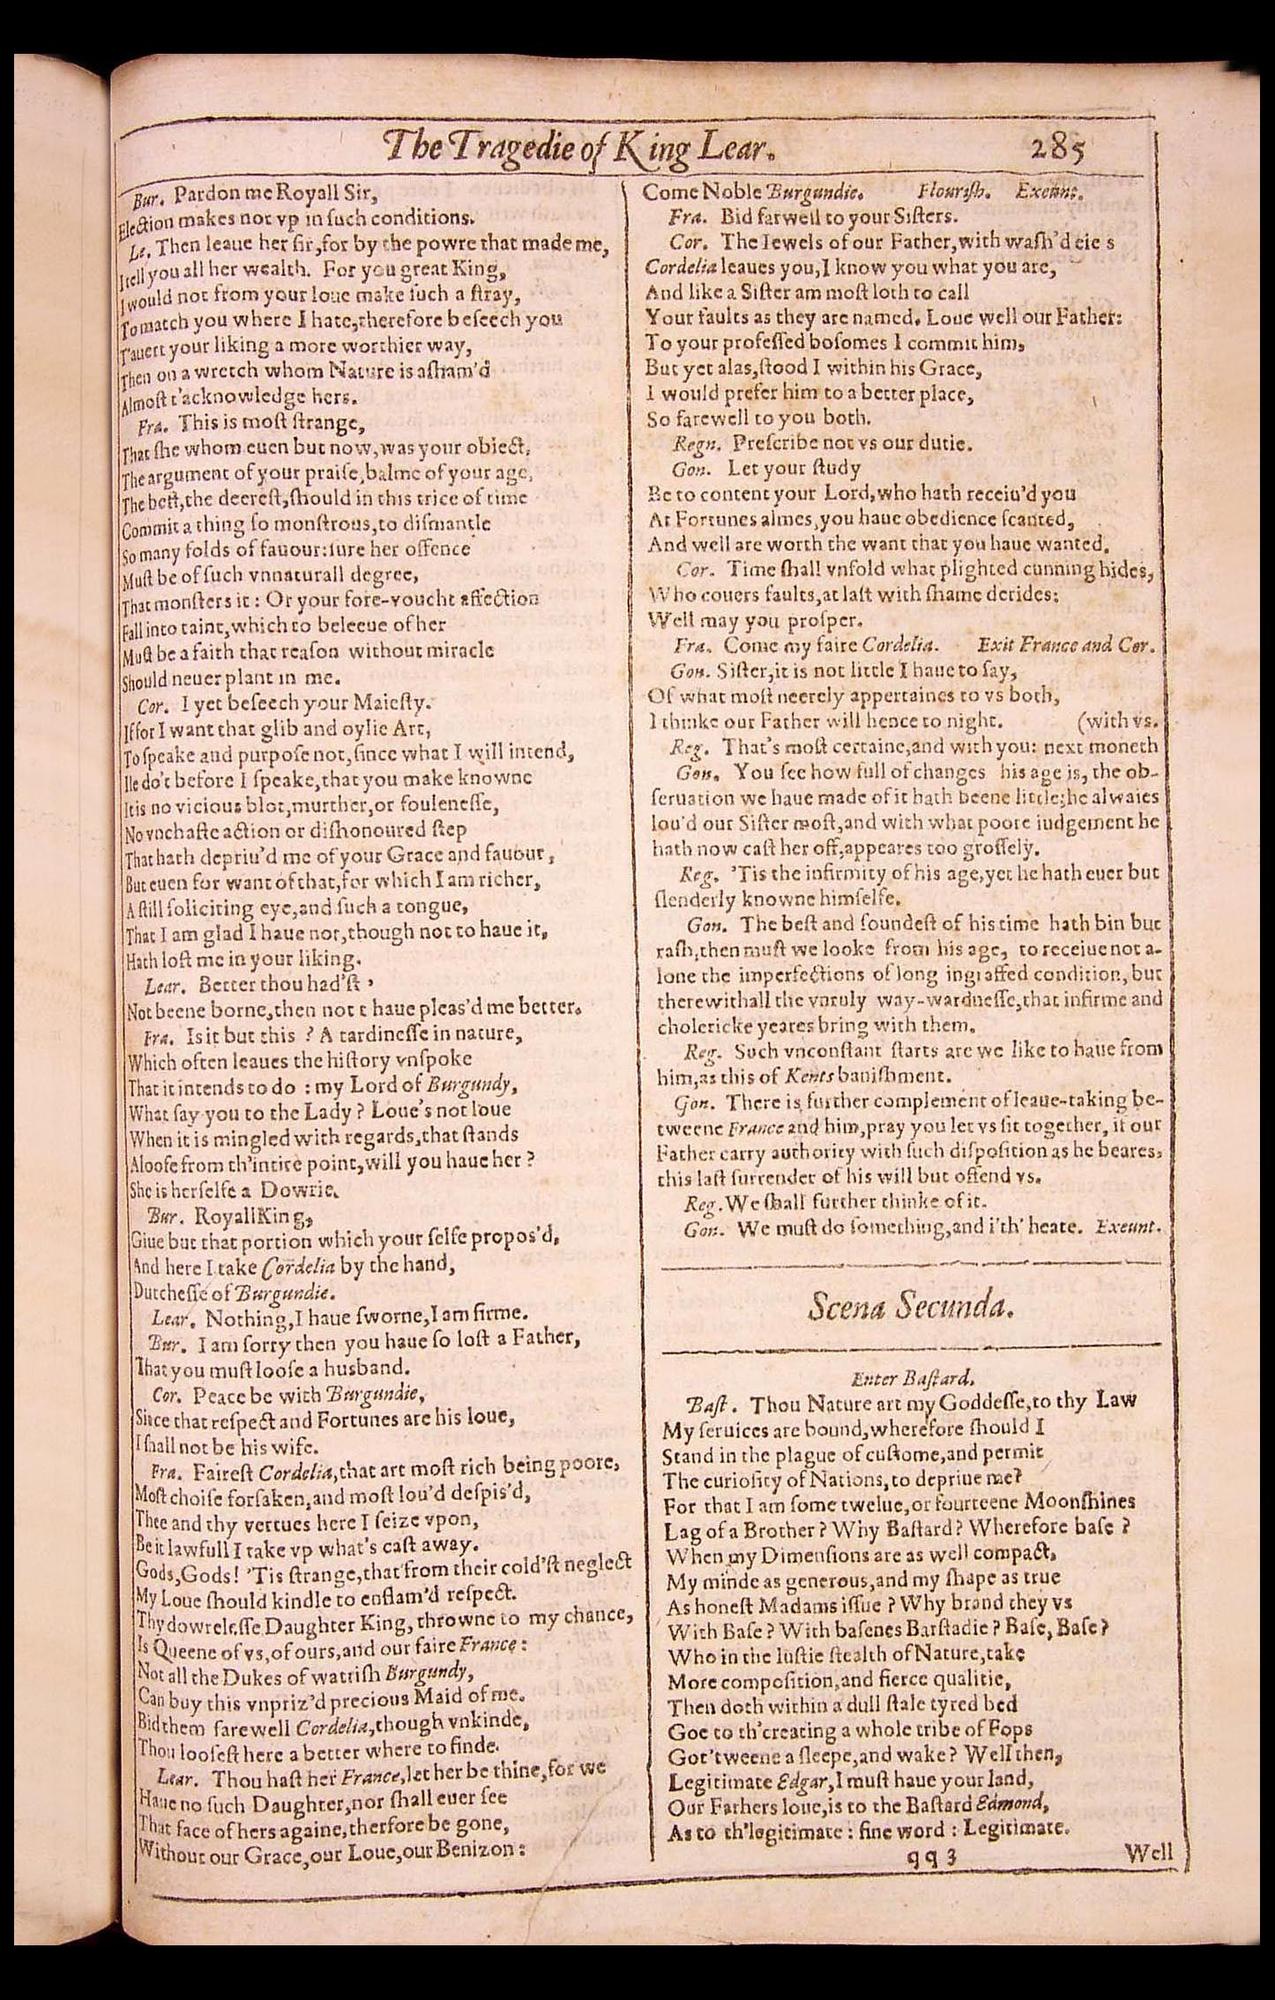 The Tragedie of King Lear. 285
Bur. Pardon me Royall Sir,
Election makes not vp in ſuch conditions.
Le. Then leaue her ſir, for by the powre that made me,
I tell you all her wealth. For you great King,
I would not from your loue make ſuch a ſtray,
To match you where I hate, therefore beſeech you
T'auert your liking a more worthier way,
Then on a wretch whom Nature is aſham'd
Almoſt t'acknowledge hers.
Fra. This is moſt ſtrange,
That ſhe whom euen but now, was your obiect,
The argument of your praiſe, balme of your age,
The beſt, the deereſt, ſhould in this trice of time
Commit a thing ſo monſtrous, to diſmantle
So many folds of fauour: ſure her offence
Muſt be of ſuch vnnaturall degree,
That monſters it: Or your fore-voucht affection
Fall into taint, which to beleeue of her
Muſt be a faith that reaſon without miracle
Should neuer plant in me.
Cor. I yet beſeech your Maieſty.
If for I want that glib and oylie Art,
To ſpeake and purpoſe not, ſince what I will intend,
Ile do't before I ſpeake, that you make knowne
It is no vicious blot, murther, or fouleneſſe,
No vnchaſte action or diſhonoured ſtep
That hath depriu'd me of your Grace and fauour,
But euen for want of that, for which I am richer,
A ſtill ſoliciting eye, and ſuch a tongue,
That I am glad I haue not, though not to haue it,
Hath loſt me in your liking.
Lear. Better thou had'ſt,
Not beene borne, then not t haue pleas'd me better.
Fra. Is it but this? A tardineſſe in nature,
Which often leaues the hiſtory vnſpoke
That it intends to do: my Lord of Burgundy,
What ſay you to the Lady? Loue's not loue
When it is mingled with regards, that ſtands
Aloofe from th'intire point, will you haue her?
She is herſelfe a Dowrie.
Bur. Royall King,
Giue but that portion which your ſelfe propos'd,
And here I take Cordelia by the hand,
Dutcheſſe of Burgundie.
Lear. Nothing, I haue ſworne, I am firme.
Bur. I am ſorry then you haue ſo loſt a Father,
That you muſt looſe a husband.
Cor. Peace be with Burgundie,
Since that reſpect and Fortunes are his loue,
I ſhall not be his wife.
Fra. Faireſt Cordelia, that art moſt rich being poore,
Moſt choiſe forſaken, and moſt lou'd deſpis'd,
Thee and thy vertues here I ſeize vpon,
Be it lawfull I take vp what's caſt away.
Gods, Gods! 'Tis ſtrange, that from their cold'ſt neglect
My Loue ſhould kindle to enflam'd reſpect.
Thy dowreleſſe Daughter King, throwne to my chance,
Is Queene of vs, of ours, and our faire France:
Not all the Dukes of wattriſh Burgundy,
Can buy this vnpriz'd precious Maid of me.
Bid them farewell Cordelia, though vnkinde,
Thou looſeſt here a better where to finde.
Lear. Thou haſt her France, let her be thine, for we
Haue no ſuch Daughter, nor ſhall euer ſee
That face of hers againe, therfore be gone,
Without our Grace, our Loue, our Benizon:
Come Noble Burgundie. Flouriſh. Exeunt.
Fra. Bid farwell to your Siſters.
Cor. The Iewels of our Father, with waſh'd eies
Cordelia leaues you, I know you what you are,
And like a Siſter am moſt loth to call
Your faults as they are named. Loue well our Father:
To your profeſſed boſomes I commit him,
But yet alas, ſtood I within his Grace,
I would prefer him to a better place,
So farewell to you both.
Regn. Preſcribe not vs our dutie.
Gon. Let your ſtudy
Be to content your Lord, who hath receiu'd you
At Fortunes almes, you haue obedience ſcanted,
And well are worth the want that you haue wanted.
Cor. Time ſhall vnfold what plighted cunning hides,
Who couers faults, at laſt with ſhame derides:
Well may you proſper.
Fra. Come my faire Cordelia. Exit France and Cor.
Gon. Siſter, it is not little I haue to ſay,
Of what moſt neerely appertaines to vs both,
I thinke our Father will hence to night. (with vs.
Reg. That's moſt certaine, and with you: next moneth
Gon. You ſee how full of changes his age is, the ob-
ſeruation we haue made of it hath beene little; he alwaies
lou'd our Siſter moſt, and with what poore iudgement he
hath now caſt her off, appeares too groſſely.
Reg. 'Tis the infirmity of his age, yet he hath euer but
ſlenderly knowne himſelfe.
Gon. The beſt and ſoundeſt of his time hath bin but
raſh, then muſt we looke from his age, to receiue not a-
lone the imperfections of long ingraffed condition, but
therewithall the vnruly way-wardneſſe, that infirme and
cholericke yeares bring with them.
Reg. Such vnconſtant ſtarts are we like to haue from
him, as this of Kents baniſhment.
Gon. There is further complement of leaue-taking be-
tweene France and him, pray you let vs ſit together, if our
Father carry authority with ſuch diſpoſition as he beares,
this laſt ſurrender of his will but offend vs.
Reg. We ſhall further thinke of it.
Gon. We muſt do ſomething, and i'th' heate. Exeunt.
Scena Secunda.
Enter Baſtard.
Baſt. Thou Nature art my Goddeſſe, to thy Law
My ſeruices are bound, wherefore ſhould I
Stand in the plague of cuſtome, and permit
The curioſity of Nations, to depriue me?
For that I am ſome twelue, or fourteene Moonſhines
Lag of a Brother? Why Baſtard? Wherefore baſe?
When my Dimenſions are as well compact,
My minde as generous, and my ſhape as true
As honeſt Madams iſſue? Why brand they vs
With Baſe? With baſenes Barſtadie? Baſe, Baſe?
Who in the luſtie ſtealth of Nature, take
More compoſition, and fierce qualitie,
Then doth within a dull ſtale tyred bed
Goe to th'creating a whole tribe of Fops
Got 'tweene a ſleepe, and wake? Well then,
Legitimate Edgar, I muſt haue your land,
Our Fathers loue, is to the Baſtard Edmond,
As to th'legitimate: fine word: Legitimate.
qq3 Well